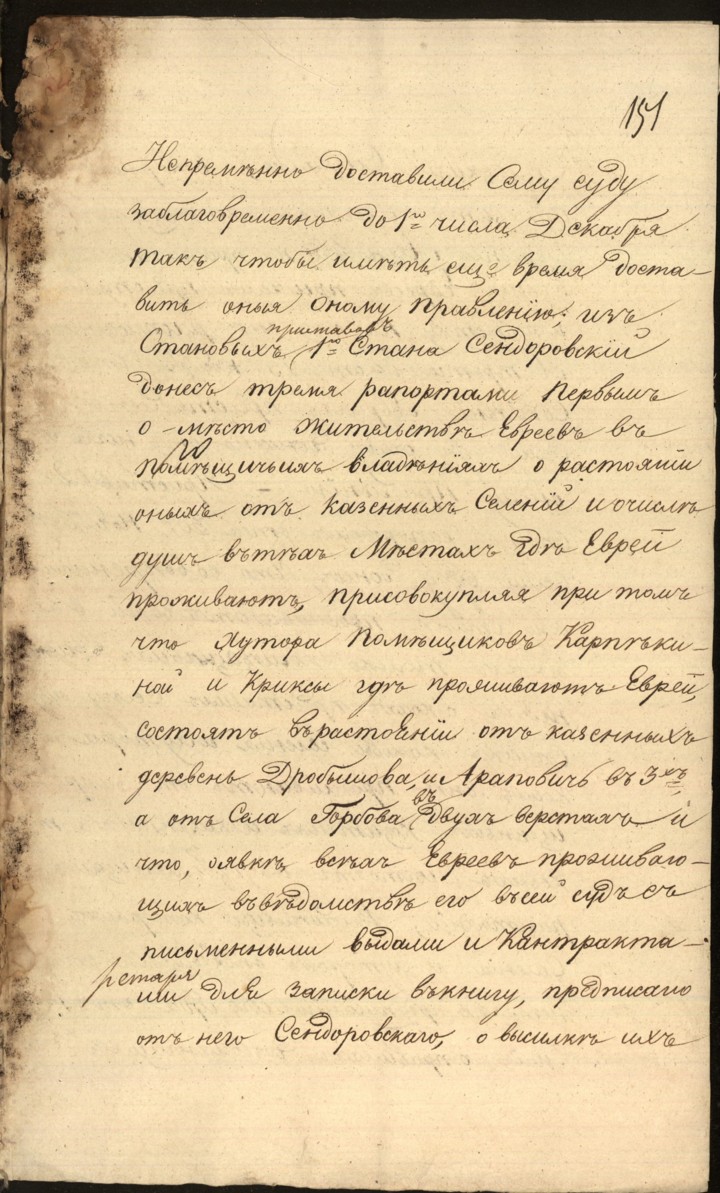 151
Непремѣнно доставили Сему суду
заблаговременно до 1го числа Декабря
такъ чтобы имѣть еще время доста-
вить оныя оному правленію; изъ
приставовъ
Становыхъ 1го Стана Сендоровскій
донесъ тремя рапортами Первымъ
о мѣсто жительствѣ Евреевъ въ
помѣщичьихъ владѣніяхъ о растояніи
оныхъ отъ казенныхъ Селеній и очислѣ
душъ вътѣхъ Мѣстахъ Гдѣ Евреи
проживаютъ, присовокупляя при томъ
что Хутора Помѣщиковъ Карпѣки-
ной и Криксы гдѣ проживаютъ Евреи,
состоятъ върастояніи отъ казенныхъ
деревень Дробышова, и Араповичь въ 3хъ
въ
а отъ Села Горбова двухъ верстахъ и
что, оявкѣ всѣхъ Евреевъ проживаю-
щихъ въвѣдомствѣ его въсей судъ съ
письменными видами и Кантракта-
ми для записки вкнигу, предписано
отъ него Сендоровскаго, о высилкѣ ихъ